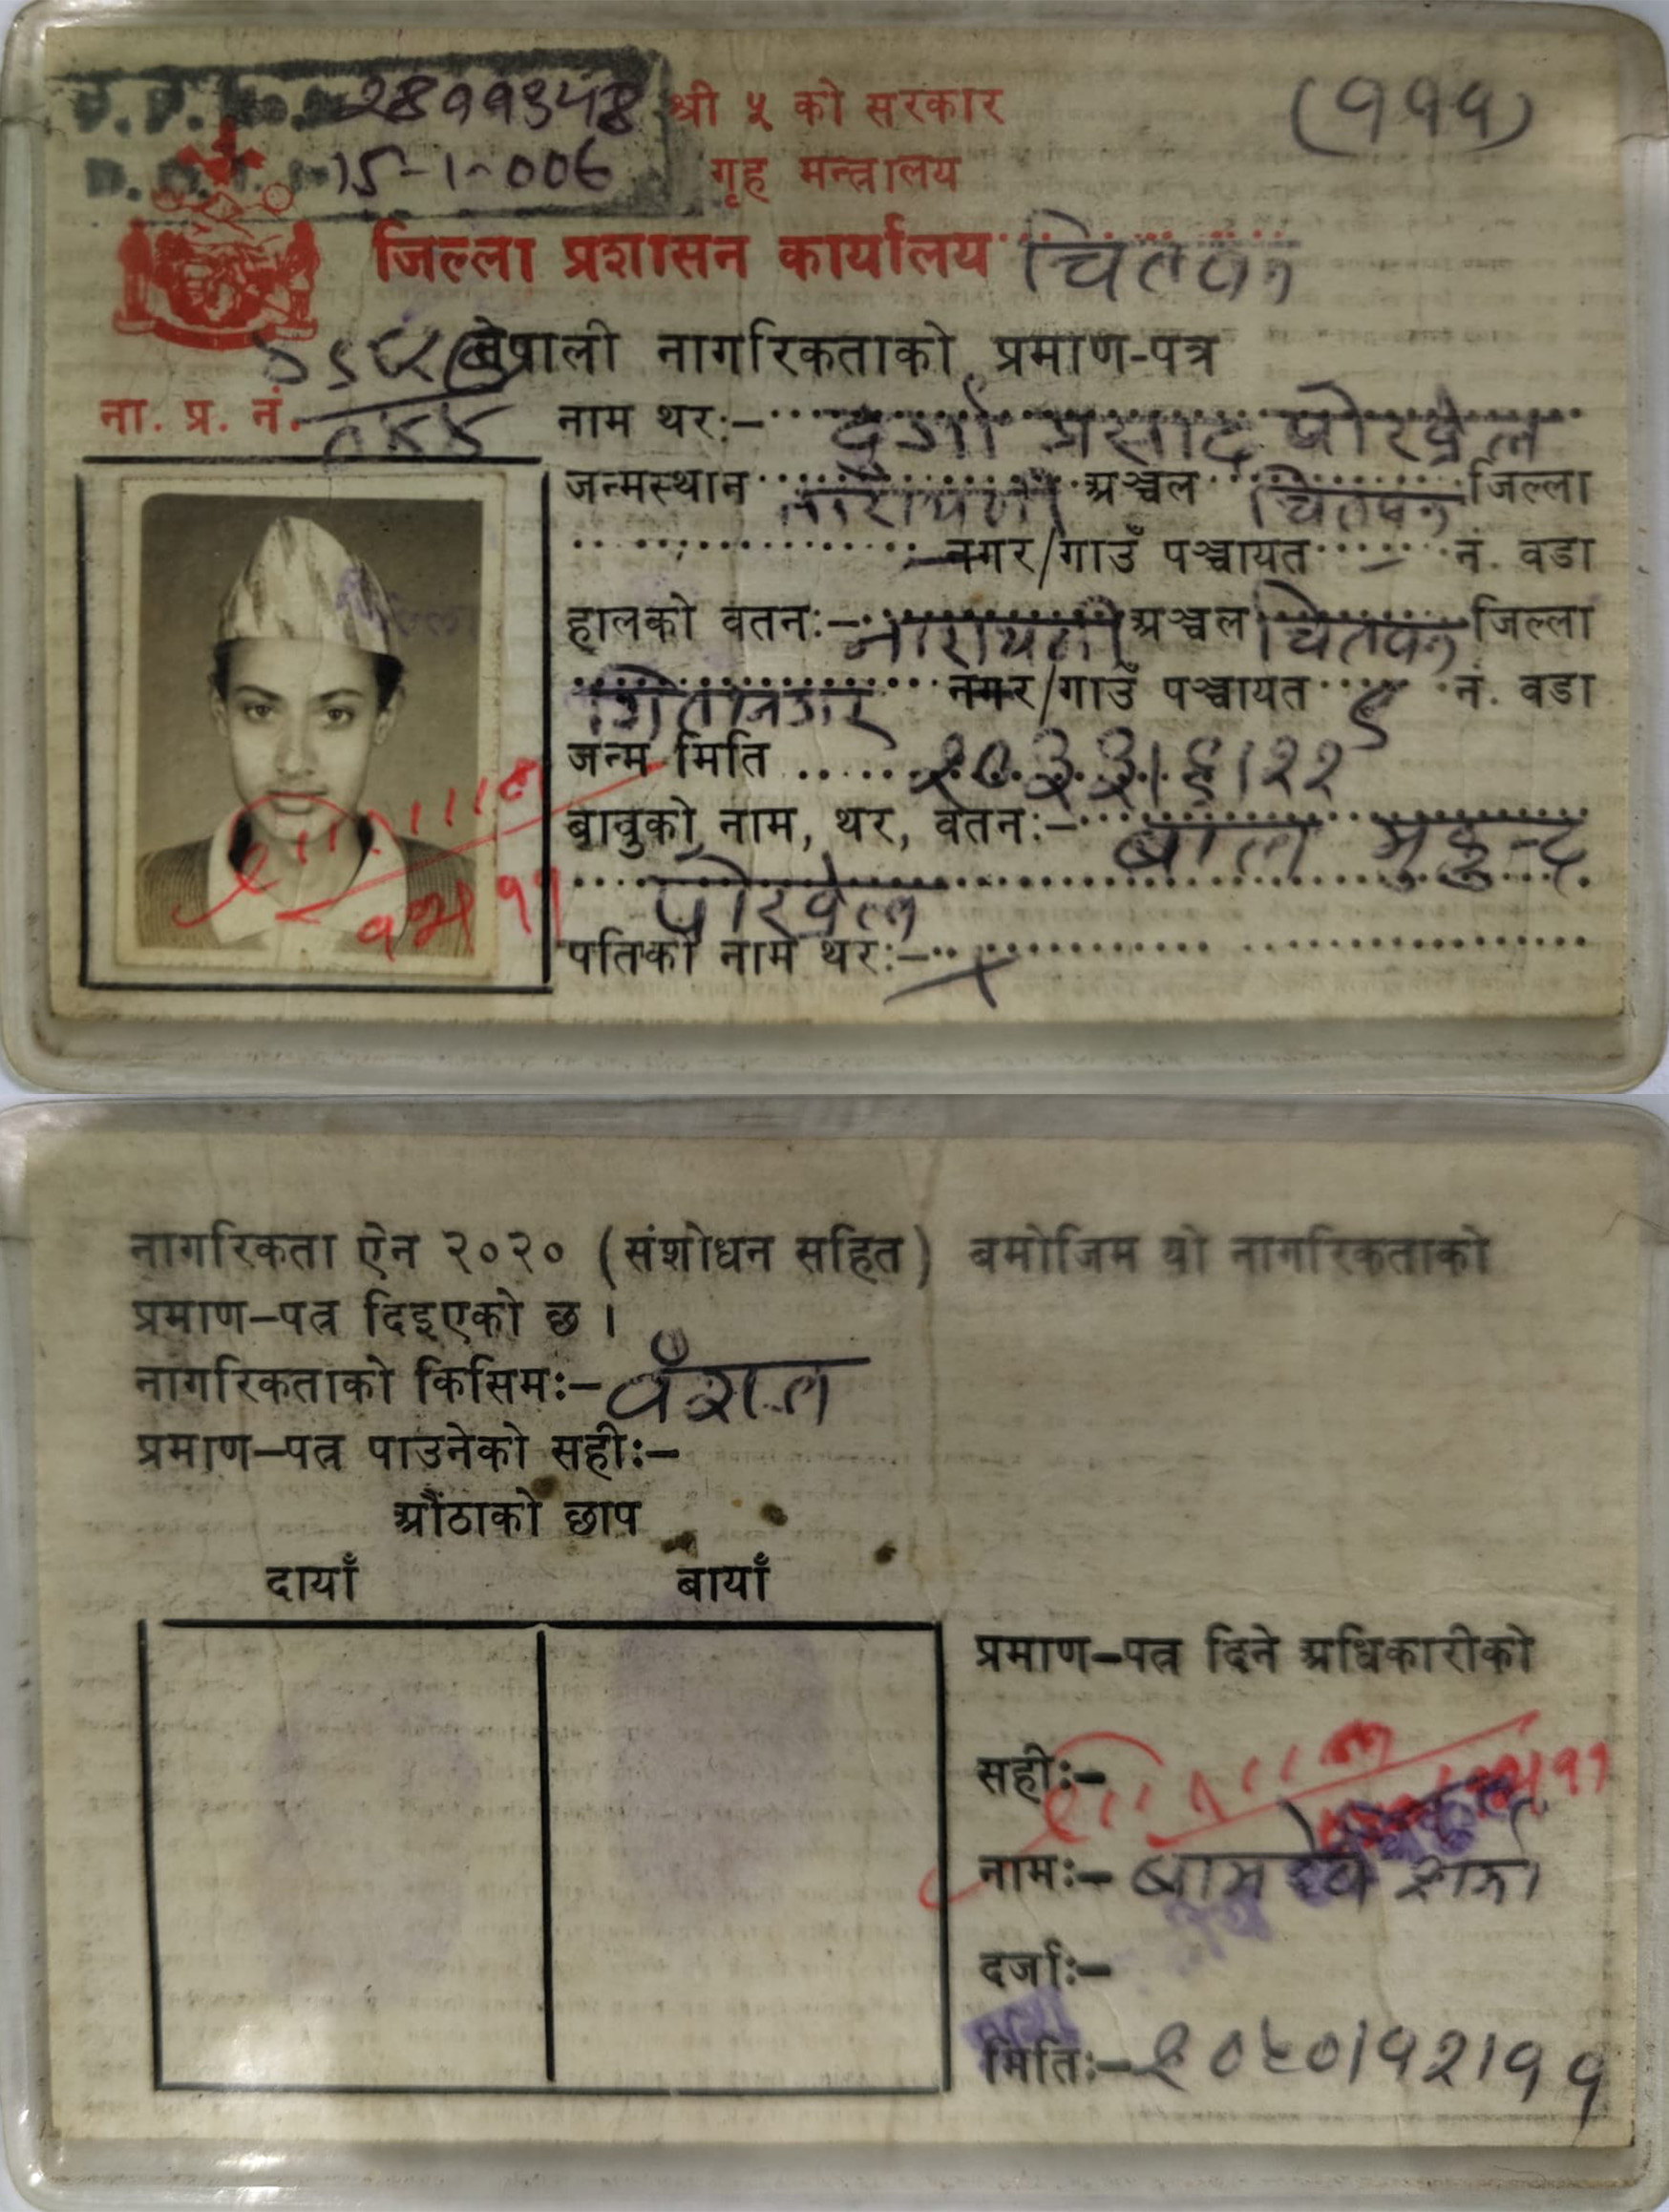 2899348 श्री ५ को सरकार (११५)
15-1-006 गृह मन्त्रालय
जिल्ला प्रशासन कार्यालय चितवन
नेपाली नागरिकताको प्रमाण-पत्र
ना. प्र. नं.
नाम थर:- दुर्गा प्रसाद पोखेल
जन्मस्थान नारायणी अञ्चल चितवन जिल्ला
नगर/गाउँ पञ्चायत - नं. वडा
हालको वतन:- नारायणी अञ्चल चितवन जिल्ला
गितानगर नगर/गाउँ पञ्चायत ९ नं. वडा
जन्म मिति २०३३।६।२२
बाबुको नाम, थर, वतन:- बाल मुकुन्द
पोखेल
पतिको नाम थर:- ✗
नागरिकता ऐन २०२० (संशोधन सहित) बमोजिम यो नागरिकताको
प्रमाण-पत्र दिइएको छ ।
नागरिकताको किसिम:- वँशज
प्रमाण-पत्र पाउनेको सही:-
औंठाको छाप
दायाँ बायाँ
प्रमाण-पत्र दिने अधिकारीको
सही:-
नाम:- बामदेव शर्मा
दर्जा:-
मिति:- २०५०।१२।११